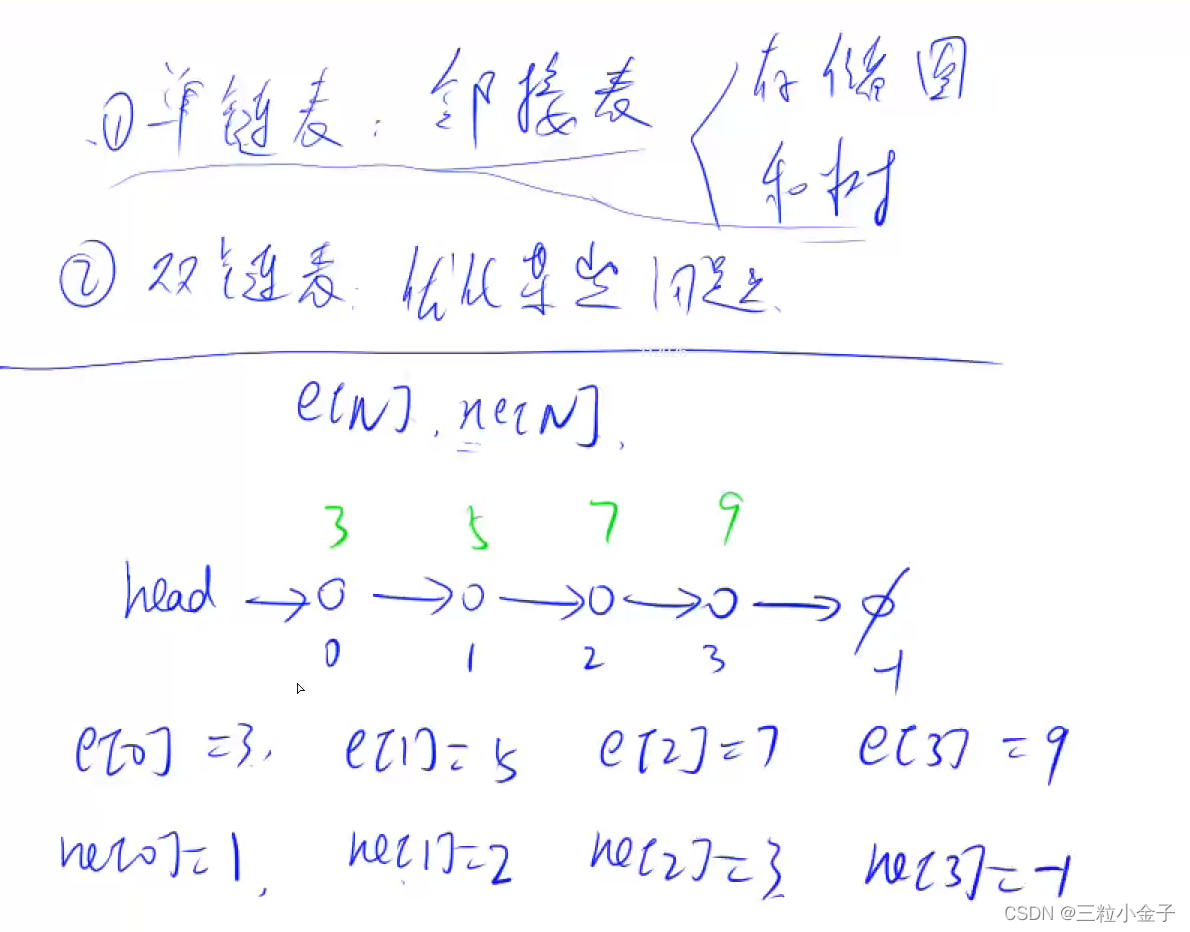 ① 单链表: 邻接表 存储图
和树
② 双链表: 优化某些问题.
e[N], ne[N],
3 5 7 9
head → O → O → O → O → ϕ
0 1 2 3 -1
e[0] =3, e[1]= 5 e[2]=7 e[3] = 9
ne[0]=1, ne[1]=2 ne[2]=3 ne[3]=-1
CSDN @三粒小金子